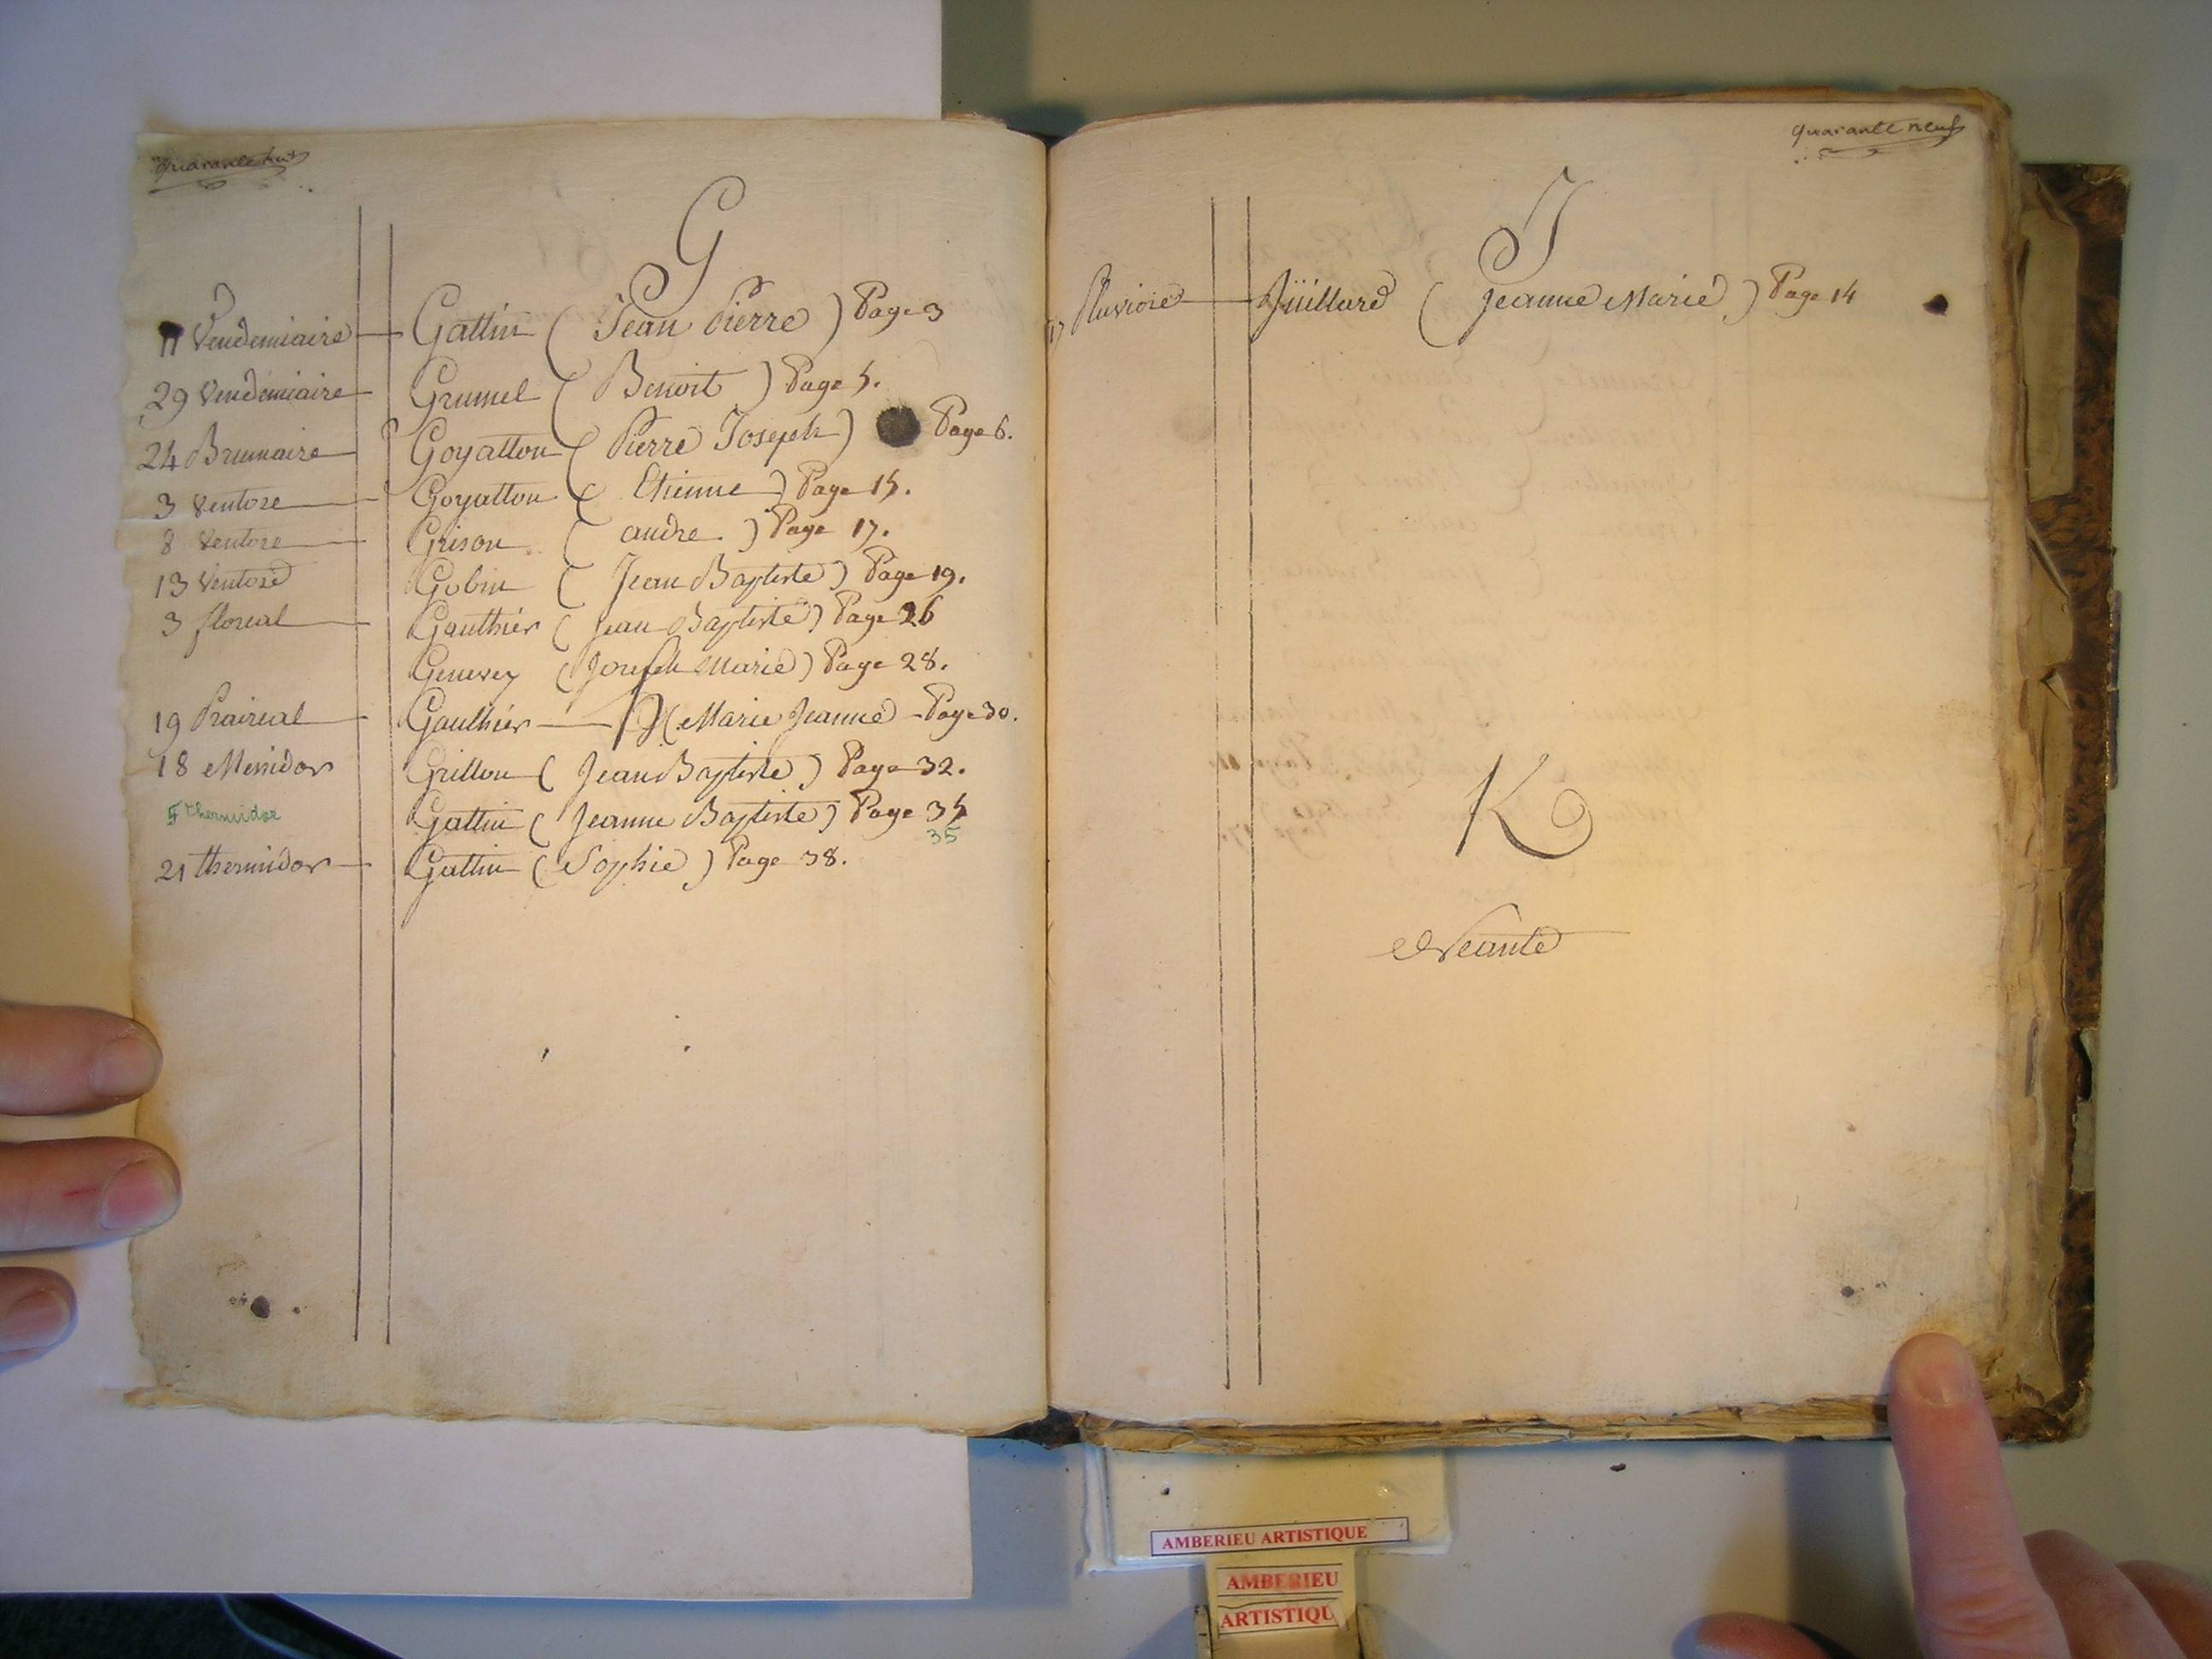 quarante huit
G
11 Vendemiaire Gattin ( Jean Pierre ) Page 3
29 Vendemiaire Grumel ( Benoit ) Page 5.
24 Brumaire Goyatton ( Pierre Joseph ) Page 6.
3 Ventose Goyatton ( Etienne ) Page 15.
8 Ventose Grison ( andre ) Page 17.
13 Ventose Gobin ( Jean Baptiste ) Page 19.
3 floreal Gauthier ( Jean Baptiste ) Page 26
Genevey ( Joseph Marie ) Page 28.
19 Prairial Gauthier ( Marie Jeanne Page 30.
18 Messidor Grillon ( Jean Baptiste ) Page 32.
5 Thermidor Gattin ( Jeanne Baptiste ) Page 35
35
21 thermidor Gattin ( Sophie ) Page 38.
quarante neuf
J
Pluviose Juillard ( Jeanne Marie ) Page 14
K
Neante
AMBERIEU ARTISTIQUE
AMBERIEU
ARTISTIQU